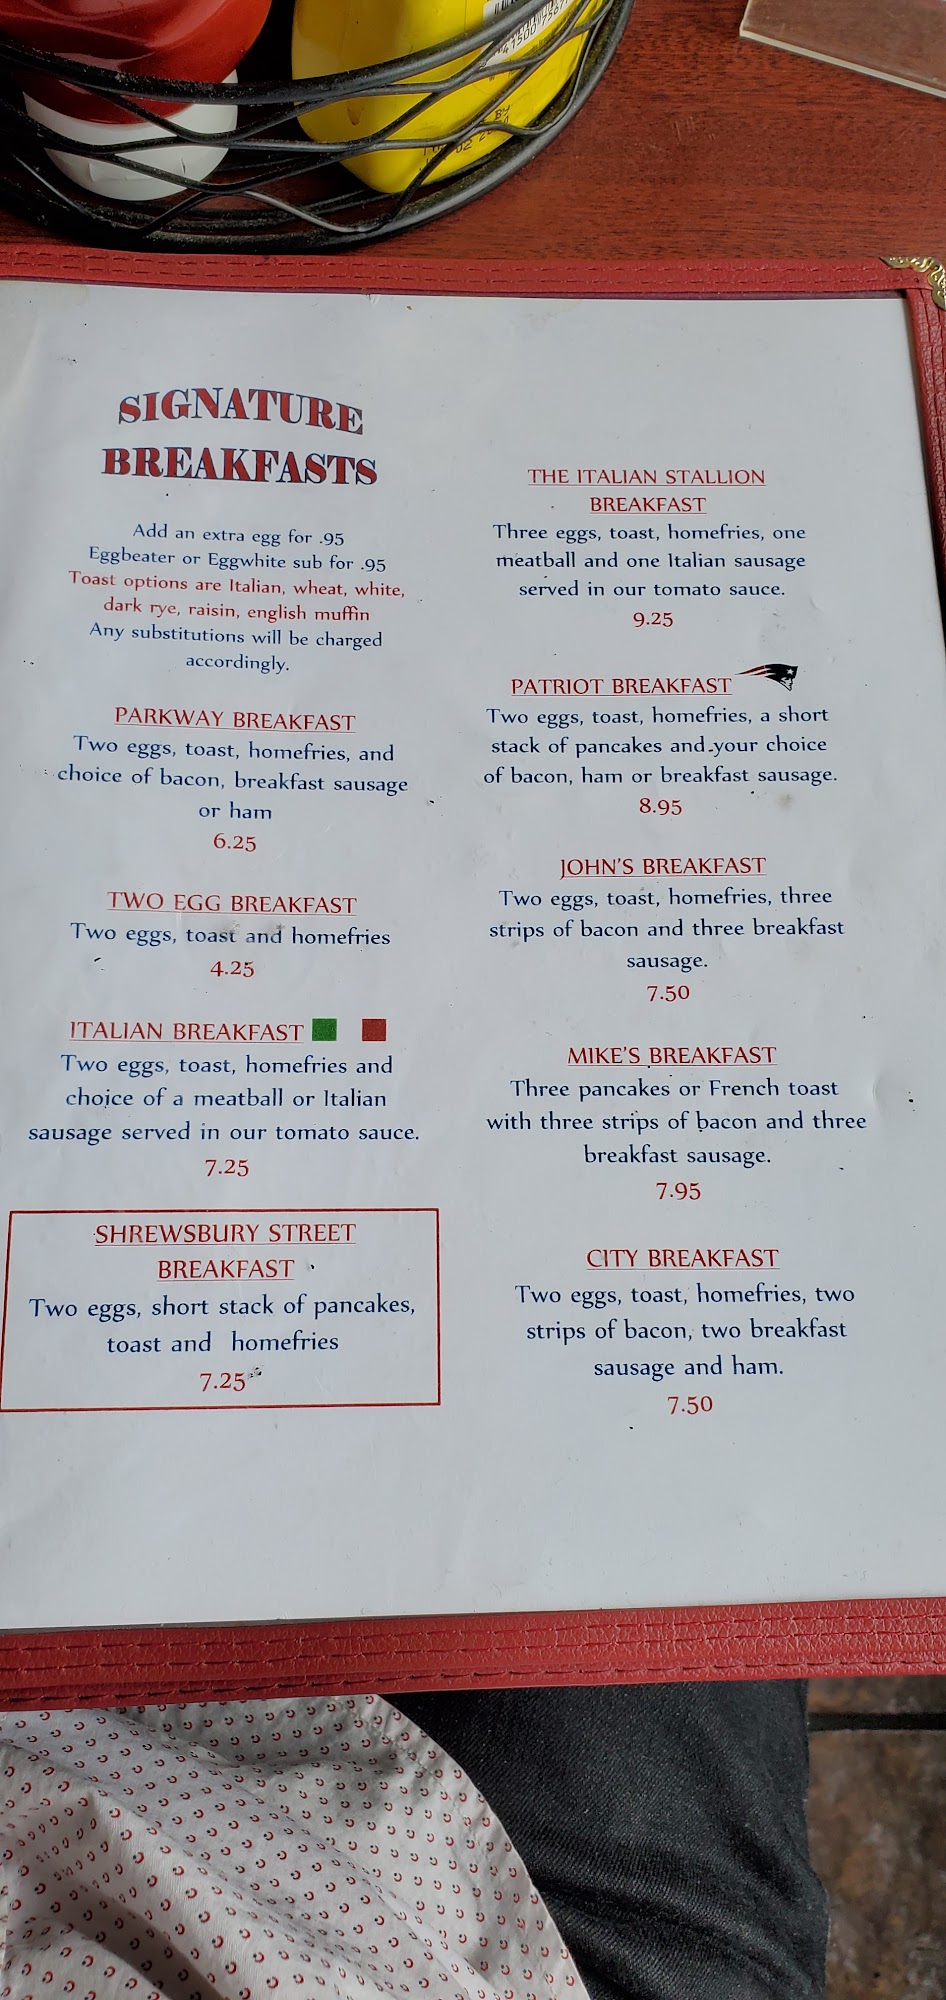 SIGNATURE
BREAKFASTS
Add an extra egg for .95
Eggbeater or Eggwhite sub for .95
Toast options are Italian, wheat, white,
dark rye, raisin, english muffin
Any substitutions will be charged
accordingly.
PARKWAY BREAKFAST
Two eggs, toast, homefries, and
choice of bacon, breakfast sausage
or ham
6.25
TWO EGG BREAKFAST
Two eggs, toast and homefries
4.25
ITALIAN BREAKFAST
Two eggs, toast, homefries and
choice of a meatball or Italian
sausage served in our tomato sauce.
7.25
SHREWSBURY STREET
BREAKFAST
Two eggs, short stack of pancakes,
toast and homefries
7.25
THE ITALIAN STALLION
BREAKFAST
Three eggs, toast, homefries, one
meatball and one Italian sausage
served in our tomato sauce.
9.25
PATRIOT BREAKFAST
Two eggs, toast, homefries, a short
stack of pancakes and your choice
of bacon, ham or breakfast sausage.
8.95
JOHN'S BREAKFAST
Two eggs, toast, homefries, three
strips of bacon and three breakfast
sausage.
7.50
MIKE'S BREAKFAST
Three pancakes or French toast
with three strips of bacon and three
breakfast sausage.
7.95
CITY BREAKFAST
Two eggs, toast, homefries, two
strips of bacon, two breakfast
sausage and ham.
7.50